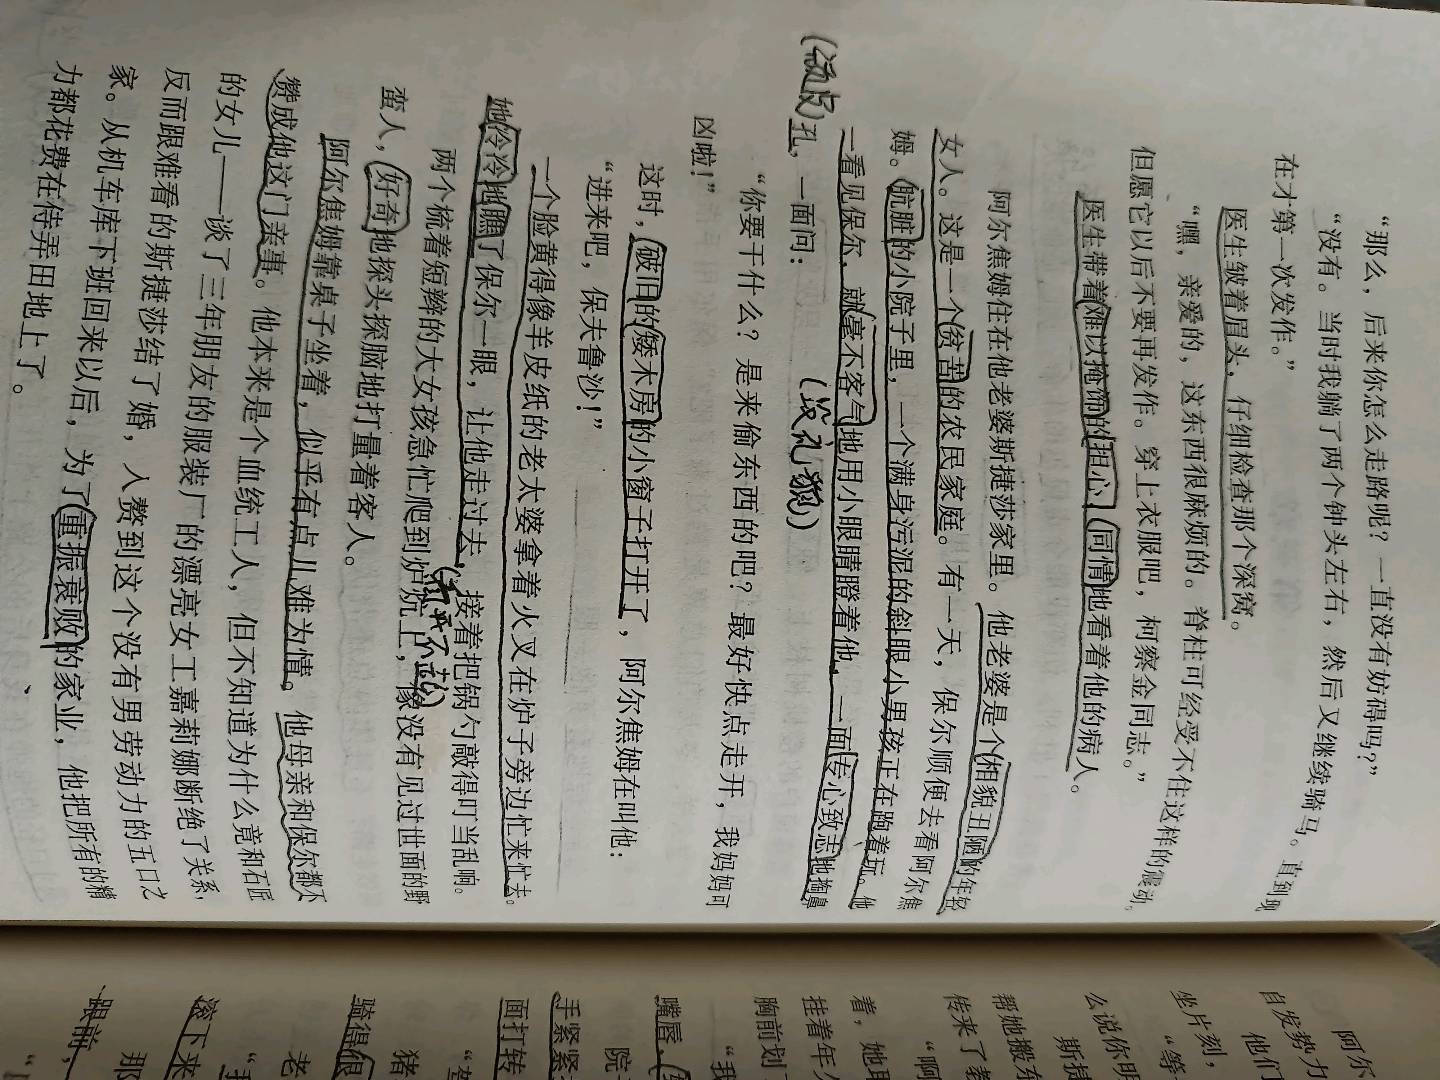 “那么，后来你怎么走路呢？一直没有妨碍吗？”
“没有。当时我躺了两个钟头左右，然后又继续骑马。直到现
在才第一次发作。”
医生皱着眉头，仔细检查那个深窝。
“嘿，亲爱的，这东西很麻烦的。脊柱可经受不住这样的震动。
但愿它以后不要再发作。穿上衣服吧，柯察金同志。”
医生带着难以掩饰的担心，同情地看着他的病人。
阿尔焦姆住在他老婆斯捷莎家里。他老婆是个相貌丑陋的年轻
女人。这是一个贫苦的农民家庭。有一天，保尔顺便去看阿尔焦
姆。肮脏的小院子里，一个满身污泥的斜眼小男孩正在跑着玩。他
一看见保尔，就毫不客气地用小眼睛瞪着他，一面专心致志地掏鼻
(没礼貌)
(顽皮)
孔，一面问：
“你要干什么？是来偷东西的吧？最好快点走开，我妈妈可
凶啦！”
这时，破旧的矮木房的小窗子打开了，阿尔焦姆在叫他：
“进来吧，保夫鲁沙！”
一个脸黄得像羊皮纸的老太婆拿着火叉在炉子旁边忙来忙去。
她冷冷地瞧了保尔一眼，让他走过去，接着把锅勺敲得叮当乱响。
两个梳着短辫的大女孩急忙爬到炉炕上，像没有见过世面的野
蛮人，好奇地探头探脑地打量着客人。
阿尔焦姆靠桌子坐着，似乎有点儿难为情。他母亲和保尔都不
赞成他这门亲事。他本来是个血统工人，但不知道为什么竟和石匠
的女儿——谈了三年朋友的服装厂的漂亮女工嘉莉娜断绝了关系，
反而跟难看的斯捷莎结了婚，入赘到这个没有男劳动力的五口之
家。从机车库下班回来以后，为了重振衰败的家业，他把所有的精
力都花费在侍弄田地上了。
阿尔
自发势力
他们
坐片刻，
“等
么说你明
斯捷
帮她搬东
传来了教
“啊
着，她耳
挂着年人
胸前划
“我
嘴唇，
院
手紧紧
面打转
“驾
猪
骑得很
老
“我
滚下来
那
跟前，